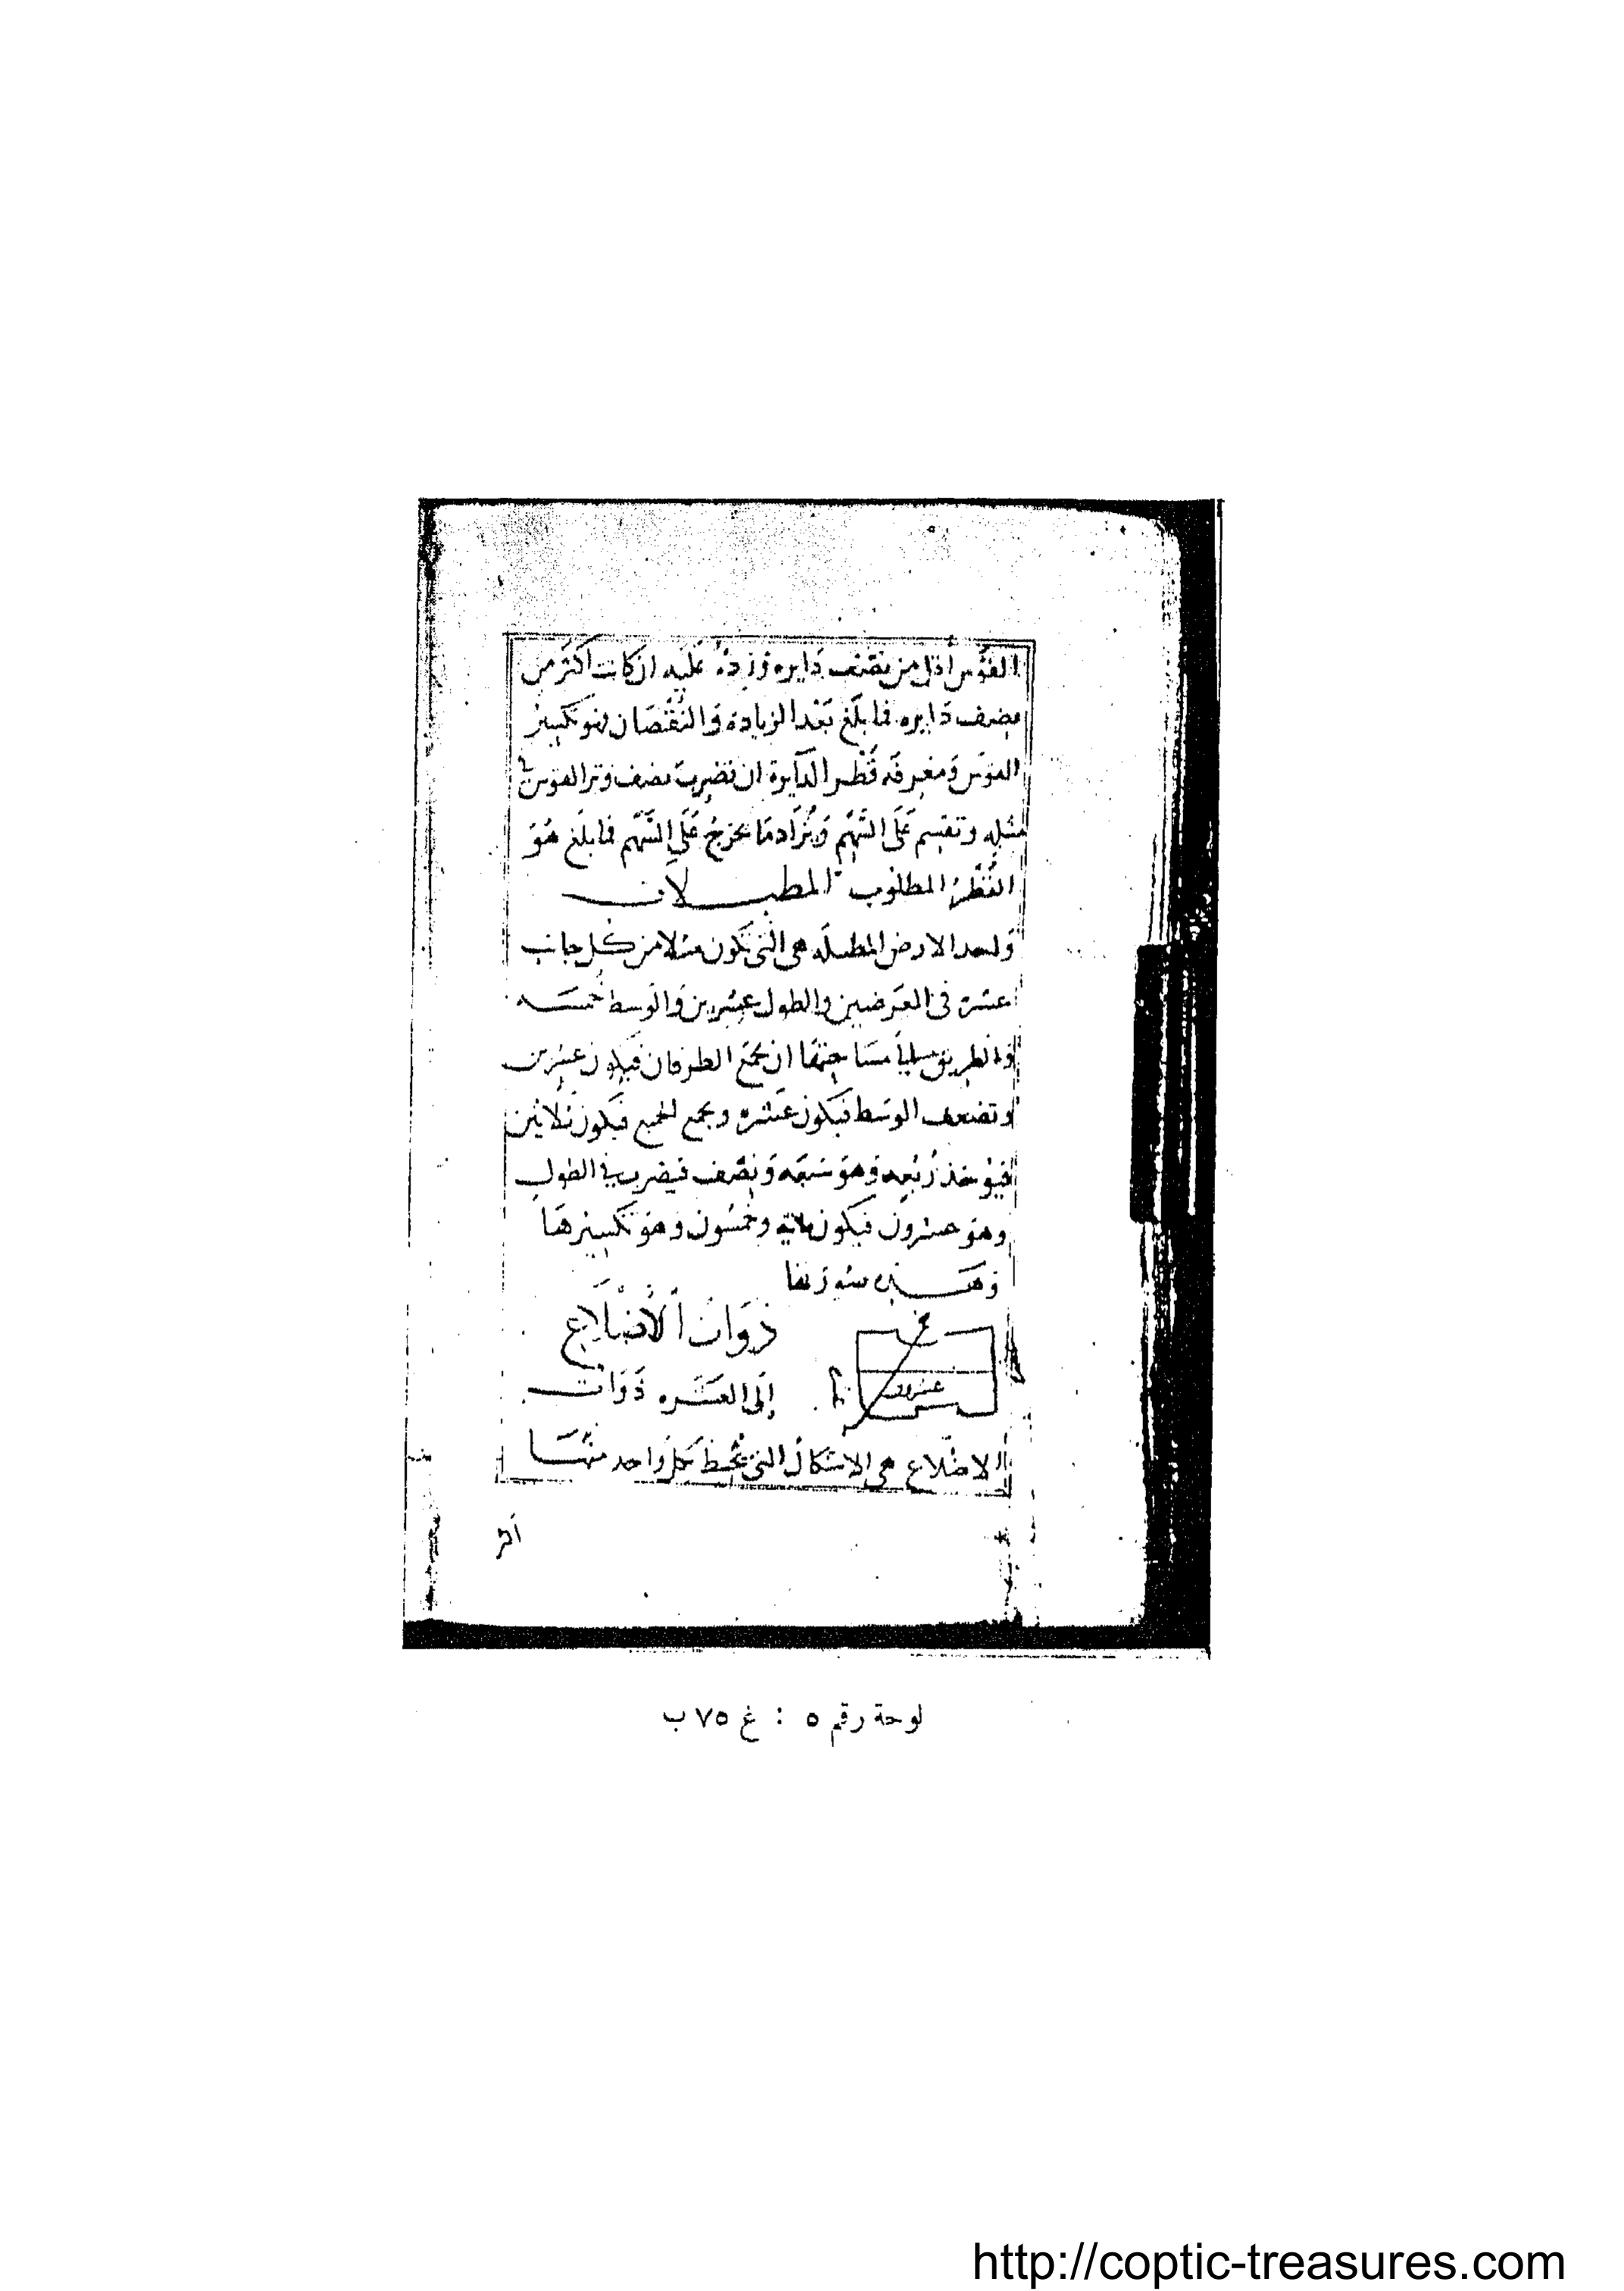 القَوْس أقل من نصف دَايره وزِدهُ عَلَيه ان كانت اكثَر من
نصف دَايره فما بلَغ بَعْد الزيادة وَالنُقْصَان فهو تكسِيرُ
القوسَ وَمَعْرِفَه قُطْر الدَايرة ان تضرب نصف وتر القوس في
مثله وتقسِم عَلى السَّهْم وَيُزَاد مَا يخرُجُ عَلَى السَّهْم فما بلَغ هُوَ
القُطْرُ المطلوب المطبــلات
الارض المطبله هى التى تكون مثلا من كل جانب
عشره فى العَرضين والطول عشرين وَالوسط خمسَــه
وَالطريق مسَاحتهَا ان يجمَع الطرفان فيكون عشرين
وتضعف الوسَط فيكون عَشره ويجمع الجميع فيكون ثلاثين
فيؤخذ رُبْعه وَهوَ سَبْعَه وَنِصْف فيضرب في الطول
وهوَ عشرون فيكون مايه وخمسُون وهوَ تكسِيرهَا
وَهَـــذه
ذَوَات الأضْلَاع
عشرون
إلَى العَشَــره ذَوَاتــ
الاضْلاع هى الاشكال التى يُحيط بكل وَاحد منهَــا
لوحة رقم ٥ : غ ٧٥ ب
http://coptic-treasures.com